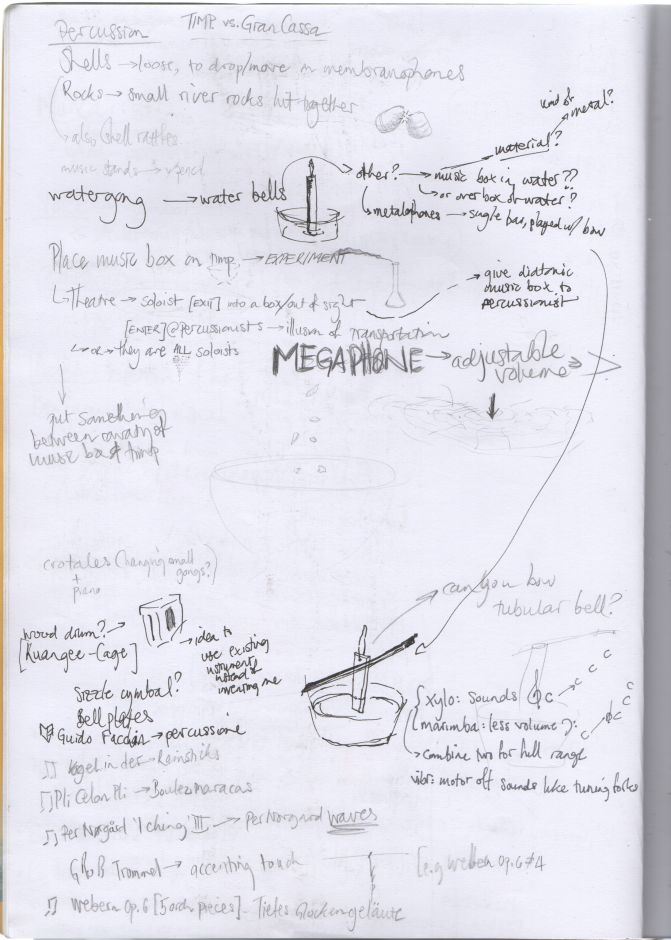 Percussion
TIMP vs. Gran Cassa
Shells → loose, to drop/move on membranophones
Rocks → small river rocks hit together
→ also shell rattles
music stands →
watergong → water bells
other? → music box in water??
material?
kind of metal?
or over box of water?
metalophones → single bar, played w/ bow
Place music box on timp. → EXPERIMENT
→ give diatonic
music box to
percussionist
Theatre → soloist [EXIT] into a box/out of sight
[ENTER] @ percussionists → illusion of transportation
or → they are ALL soloists
MEGAPHONE → adjustable
volume
put something
between cavity of
music box & timp
crotales (hanging small
gongs?)
+
piano
can you bow
tubular bell?
wood drum?
[Kuangee-Cage]
→ idea to
use existing
instruments
instead of
inventing one
Sizzle cymbal?
Bell plates
Guido Facchin → percussione
Xylo: sounds C C C
marimba: (less volume): C C
combine two for full range
vibr: motor off sounds like tuning forks
in der → Rainsticks
Pli Celon Pli → Boulez maracas
Per Nørgård 'I Ching' III → Per Nørgaard waves
GRoB Trommel → accenting touch
[e.g Webern Op.6 #4
Webern Op. 6 [5 orch pieces] - Tiefes Glockengeläute